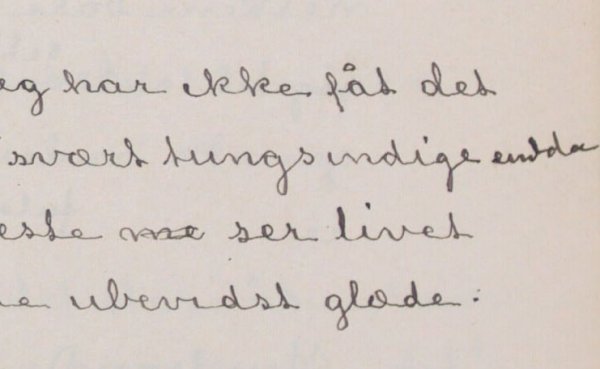 eg har ikke fåt det
svært tungsindige endda
este me ser livet
e ubevidst glæde.